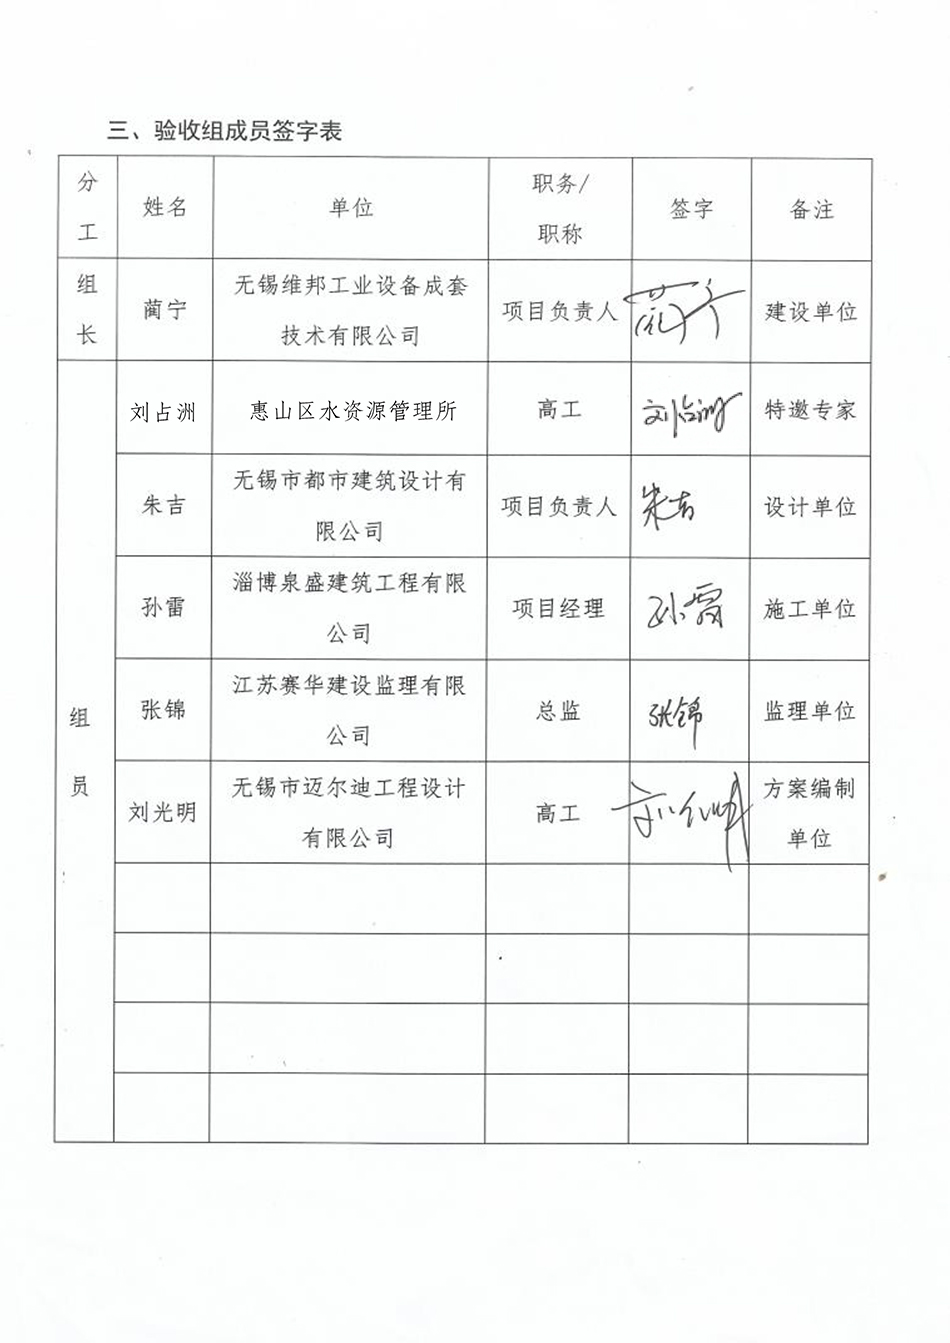 三、验收组成员签字表
分工 姓名 单位 职务/职称 签字 备注
组长 蔺宁 无锡维邦工业设备成套技术有限公司 项目负责人 建设单位
组员
刘占洲 惠山区水资源管理所 高工 刘占洲 特邀专家
朱吉 无锡市都市建筑设计有限公司 项目负责人 朱吉 设计单位
孙雷 淄博泉盛建筑工程有限公司 项目经理 孙雷 施工单位
张锦 江苏赛华建设监理有限公司 总监 张锦 监理单位
刘光明 无锡市迈尔迪工程设计有限公司 高工 刘光明 方案编制单位